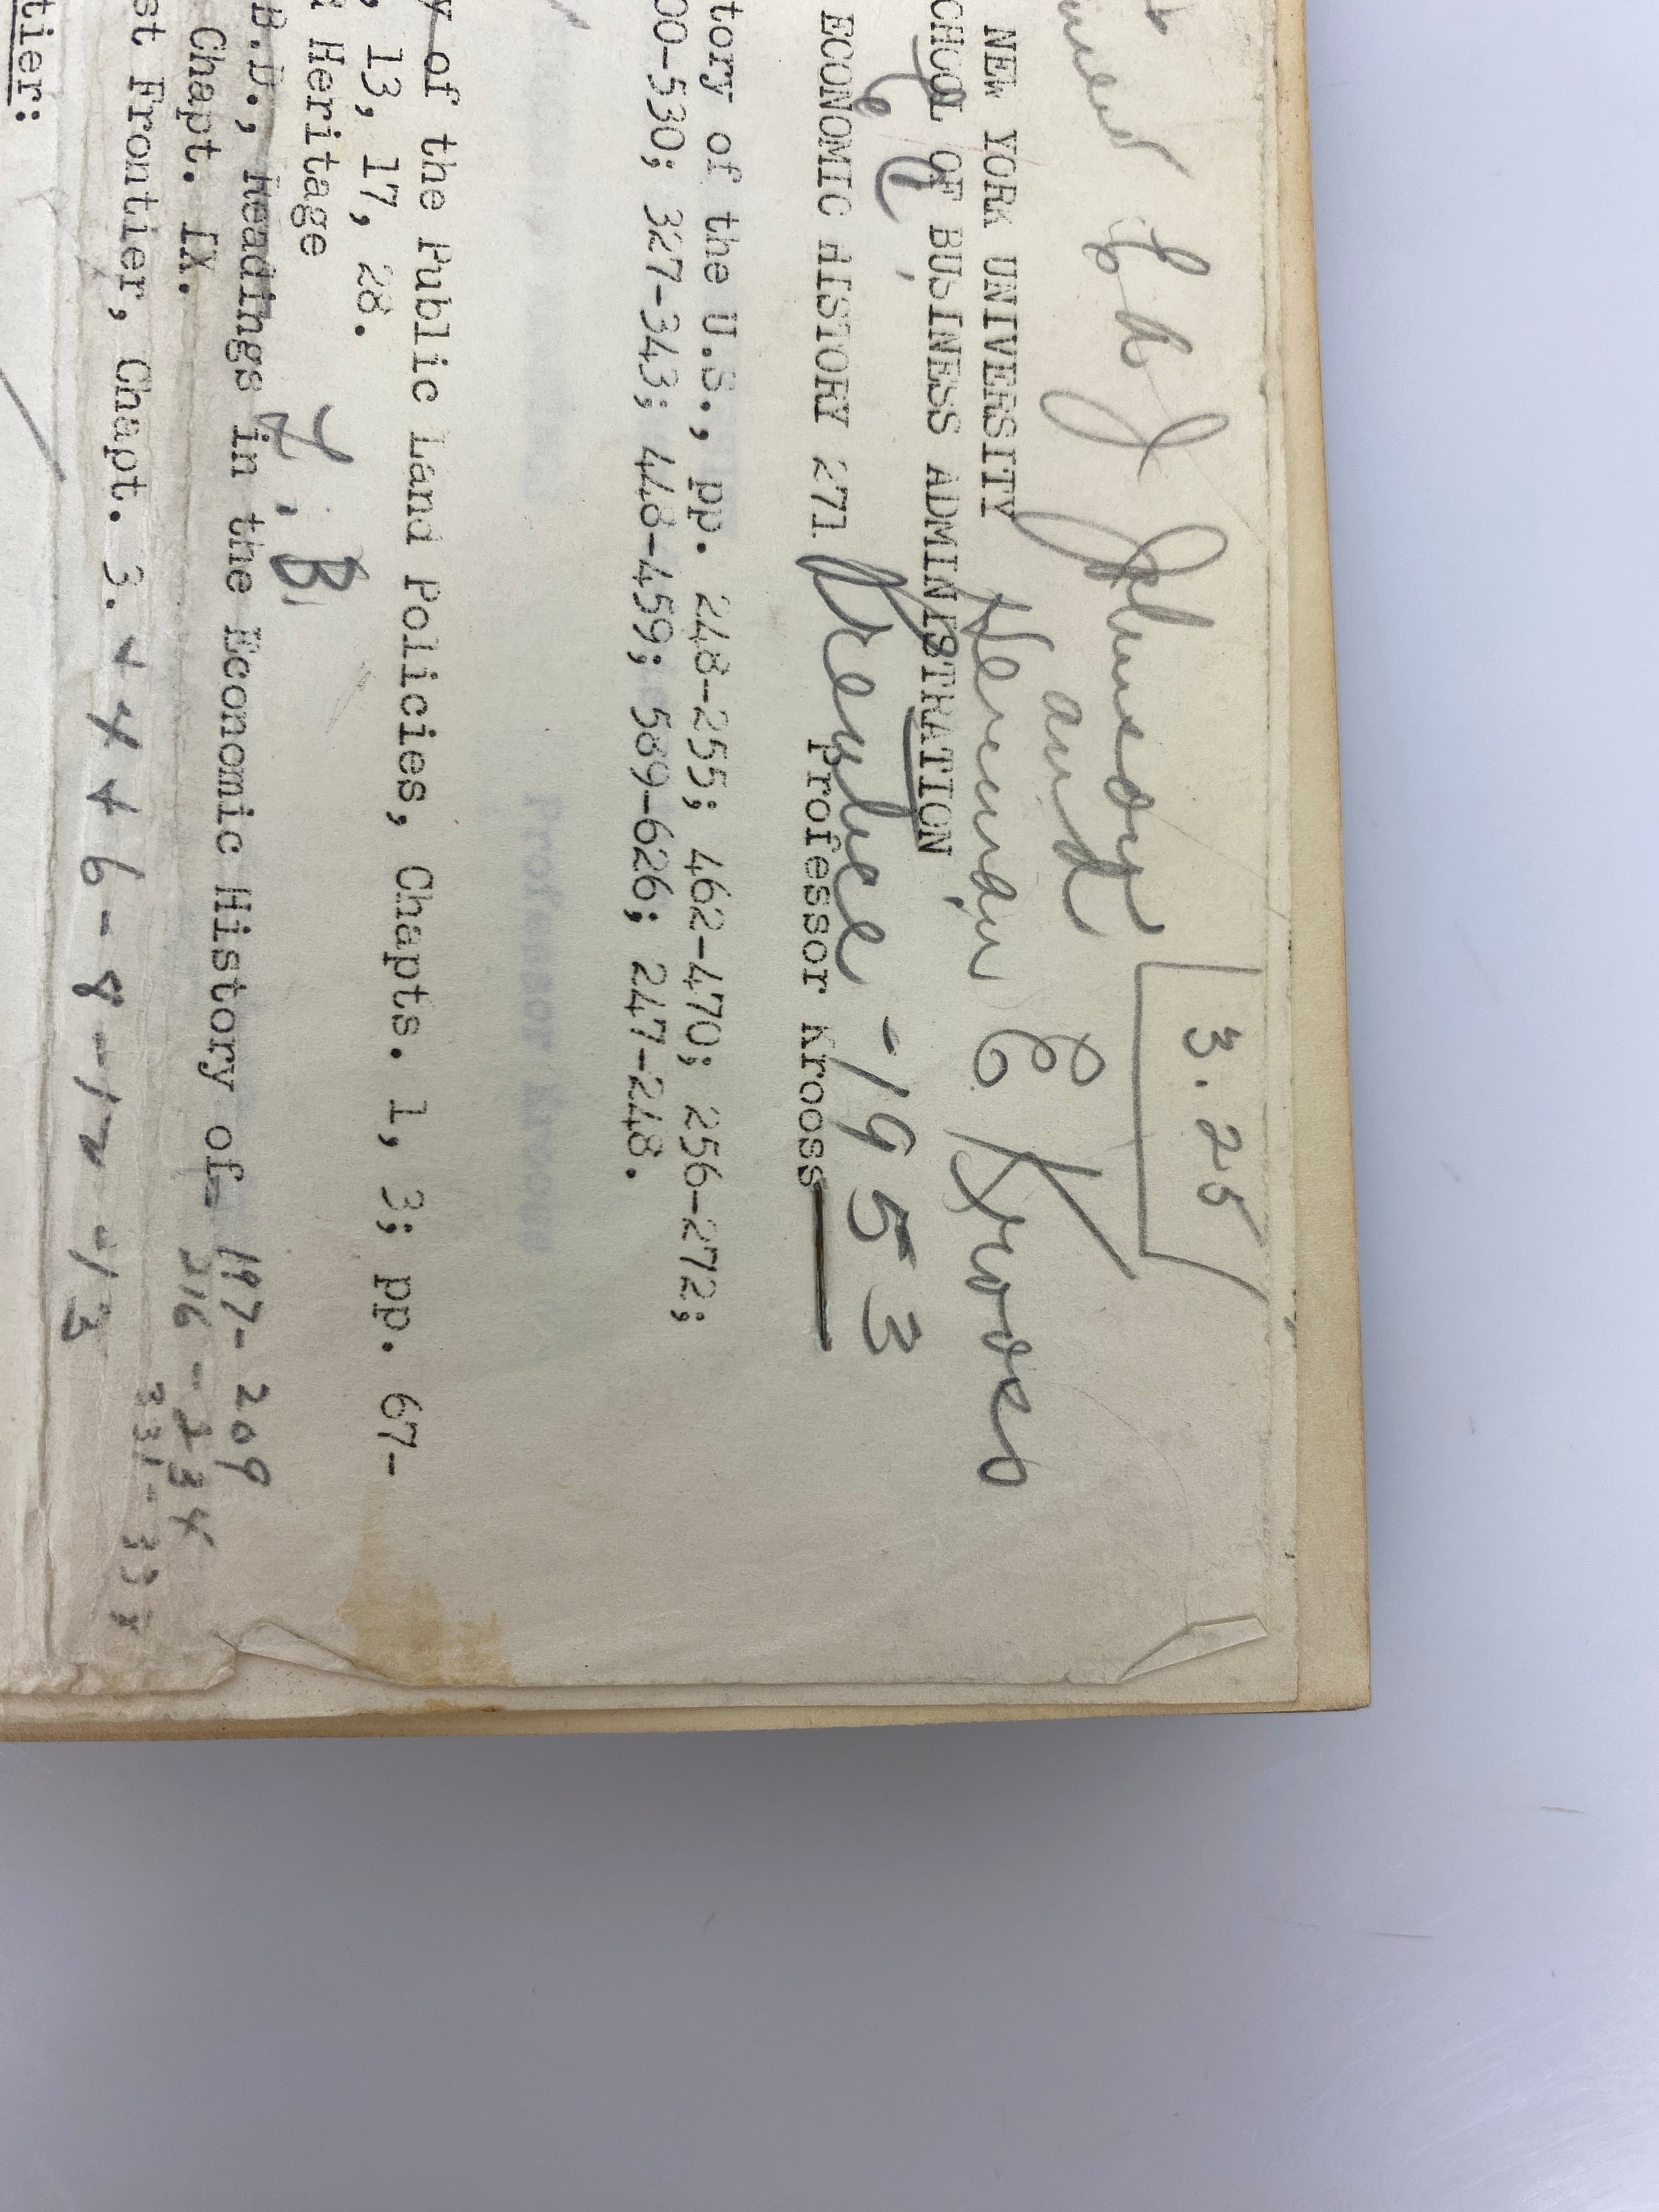 3.25
Ed J Johnson
and
Herman E Krooss
NEW YORK UNIVERSITY
CHOOL OF BUSINESS ADMINISTRATION
Prentice - 1953
ECONOMIC HISTORY 271 Professor Krooss
tory of the U.S., pp. 248-255; 462-470; 256-272;
00-530; 327-343; 448-459; 589-626; 247-248.
y of the Public Land Policies, Chapts. 1, 3; pp. 67-
, 13, 17, 28.
Heritage
B.
B.D., Readings in the Economic History of 197-209
Chapt. IX. 216-234
st Frontier, Chapt. 3. 331-33
4 + 6 - 8 - 12 - 13
tier: